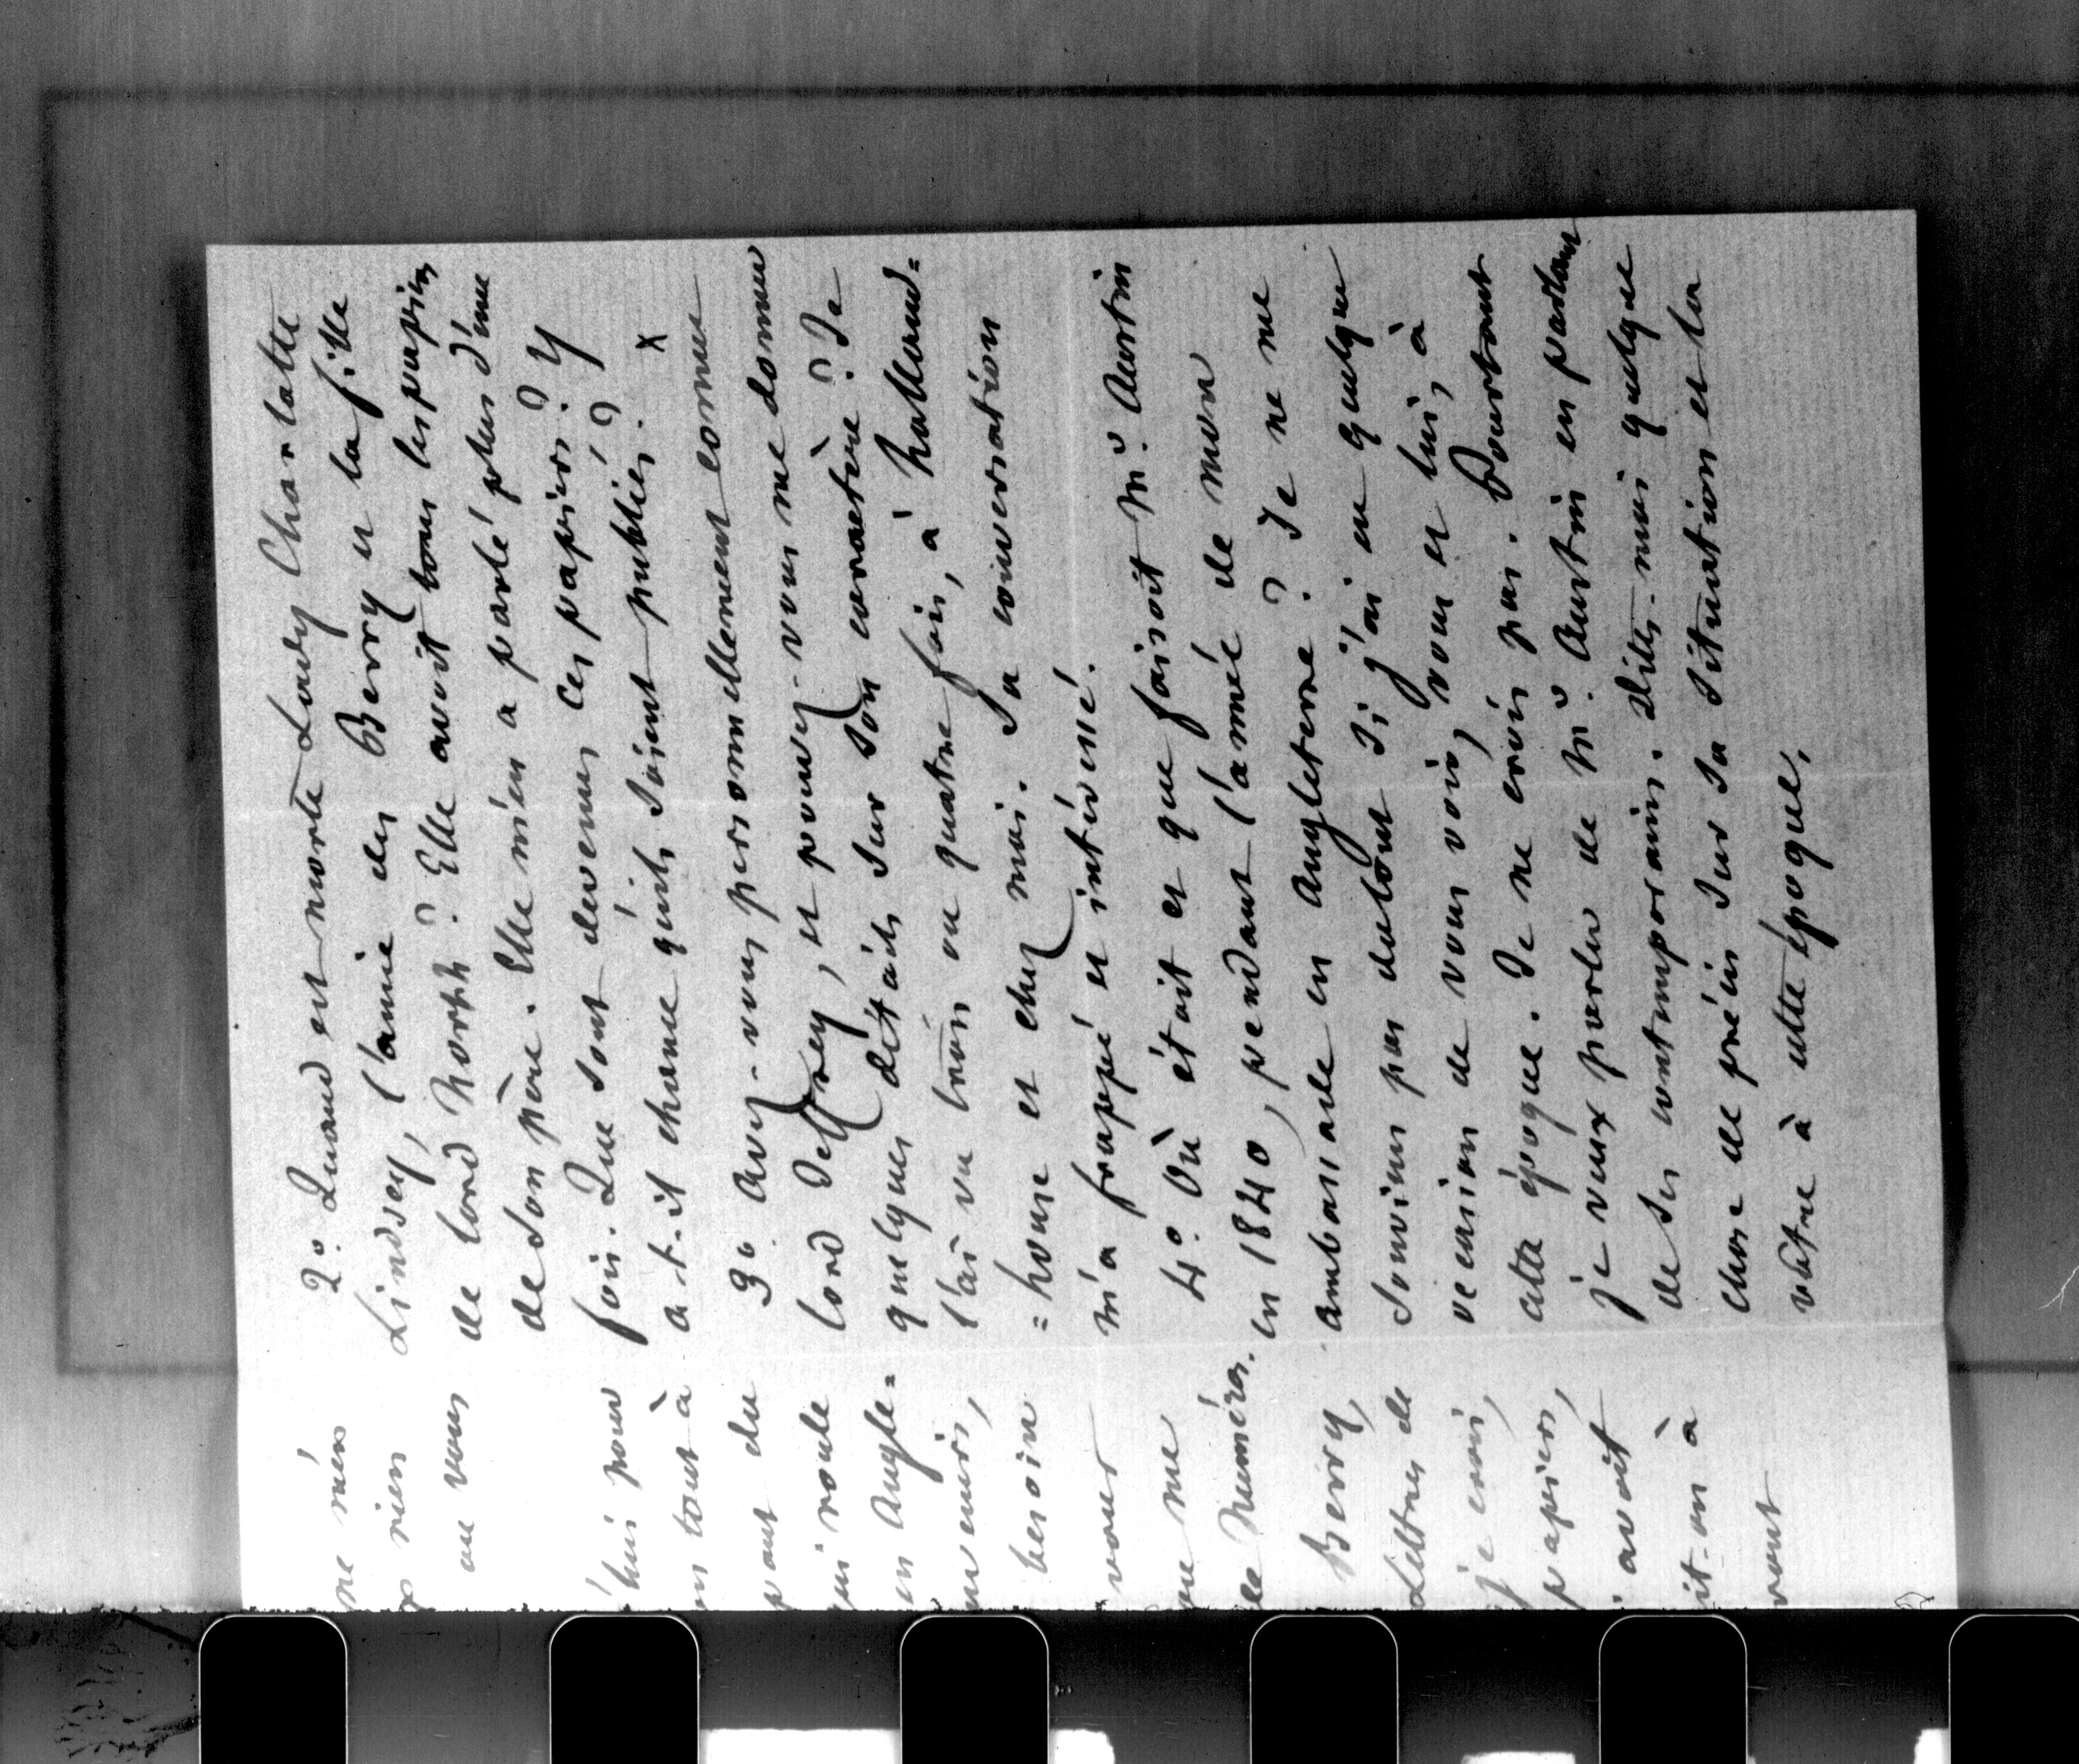 ne m'en
rien
ou vous
'hui pour
en tout à
pant du
qui roule
en Angle=
souvenirs,
besoin
vour
que me
le numéro.
Berry,
Lettres de
je crois,
papiers,
avoit
it-on à
vont
2º. Quand est morte Lady Charlotte
Lindsey, l'amie des Berry et la fille
de lord North ? Elle avoit tous les papiers
de son père. Elle m'en a parlé plus d'une
fois. Que sont devenus ces papiers ? Y
a-t-il chance qu'ils soient publiés ? x
3º. Avez-vous personnellement connu
lord Jeffrey, et pouvez-vous me donner
quelques détails sur son caractère ? Je
l'ai vu trois ou quatre fois, à Holland=
=house et chez moi. Sa conversation
m'a frappé et intéressé.
4º. Où étoit et que faisoit Mr. Austin
en 1840, pendant l'année de mon
ambassade en Angleterre ? Je ne me
souviens pas du tout si j'ai eu quelque
occasion de vous voir, vous et lui, à
cette époque. Je ne crois pas. Pourtant
je veux parler de Mr. Austin en parlant
de ses contemporains. Dites-moi quelque
chose de précis sur sa situation et la
vôtre à cette époque.